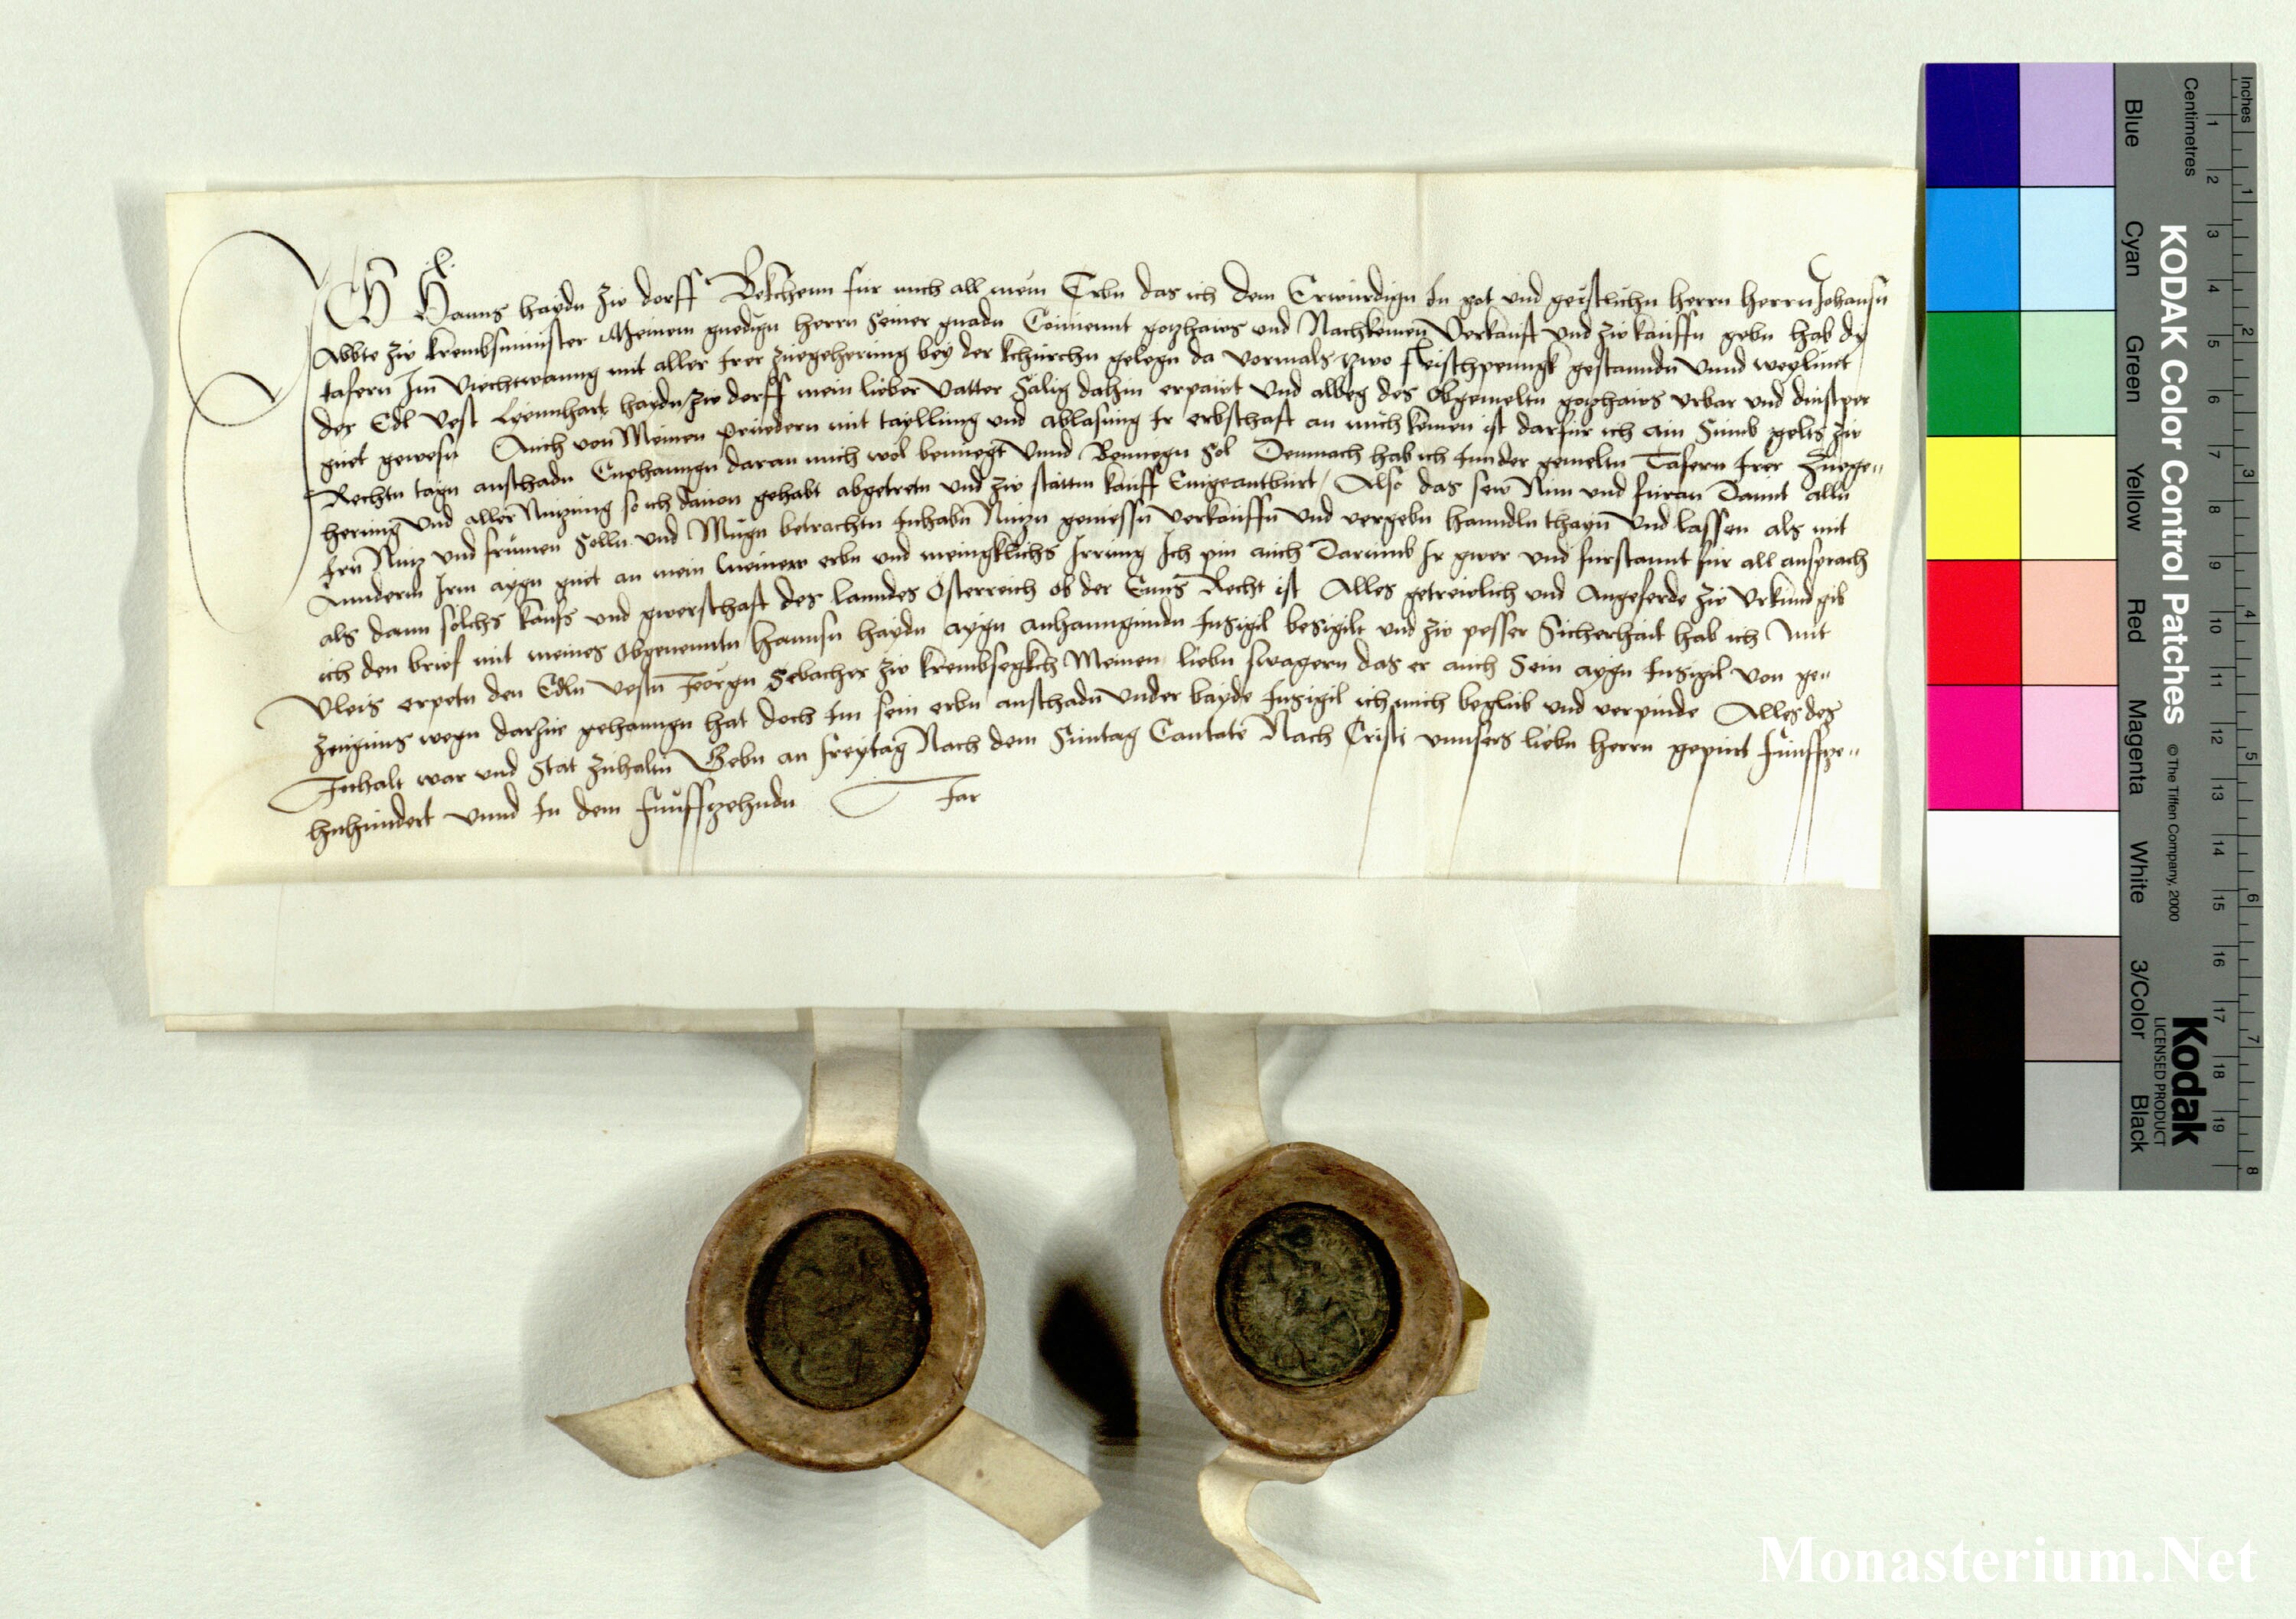 Ich Hanns haydn zw dorff Bekchenn fur mich all mein Erbn das ich dem Erwirdign In got und geistlichn herrn herrn Johansn
Abbte zw krembsmunster Meinem gnedign herrn Seiner gnadn Conuennt gotzhaws und Nachkomen Verkauft und zw kauffn gebn hab dy
tafern Im Viechtwanng mit aller Irer zuegehering bey der kchirchn gelegn da vormals zwo fleischpenngk gestanndn Vnnd weylunt
der Edl Vest Lyennhart haydn zw dorff mein lieber Vatter Sälig dahin erpawt Und alweg des Obgemeltn gotzhaws Vrbar und dinstper
guet gewesn Auch von Meinen pruedern mit taylling und ablasung Ir erbschaft an mich komen ist darfur ich ain Sumb gelts zw
Rechtn tagn anschadn Enphanngn daran mich wol benuegt Vnnd Benuegn Sol Demnach hab ich Inn der gemeltn Tafern Irer Zuege"
hering Und aller Nutzung so ich dauon gehabt abgetretn und zw stattm kauff Eingeantburt Also das sew Nun und furan Damit alln
Irn Nutz und frumen Solln und Mugn betrachtn Inhabn Nutzn geniessn Verkauffn Und vergebn hanndln thayn Und lassen als mit
Anndern Irm aygn guet an mein Meiner erbn und meingklichs Irrung Ich pin auch Darumb Ir gwer und furstannt fur all ansprach
als dann solchs kaufs und gwerschaft des lanndes Osterreich ob der Enns Recht ist Alles getrewlich und Angeferde zw Urkund gib
ich den brief mit meines Obgenenntn hannsn haydn aygn anhanngundn Insigil besigilt und zw pesser Sicherhait hab ich Mit
Vleis erpetn den Edln Vestn Jeorgn Sebacher zw krembsegkch Meinen liebn swagern das er auch Sein aygn Insigil von ge"
zeugnus wegn darzue gehanngn hat doch Im sein erbn anschadn Vnder bayde Insigil ich mich beglub und verpinde Alles des
Inhalt war und Stat zuhaltn Gebn an freytag Nach dem Suntag Cantate Nach Cristi vnnsers liebn herrn gepurt funffze"
hnhundert vnnd In dem funffzehndn Jar
Inches
Centimetres
KODAK Color Control Patches
© The Tiffen Company, 2000
Kodak
LICENSED PRODUCT
Blue
Cyan
Green
Yellow
Red
Magenta
White
3/Color
Black
1
2
3
4
5
6
7
8
9
10
11
12
13
14
15
16
17
18
19
1
2
3
4
5
6
7
8
Monasterium.Net